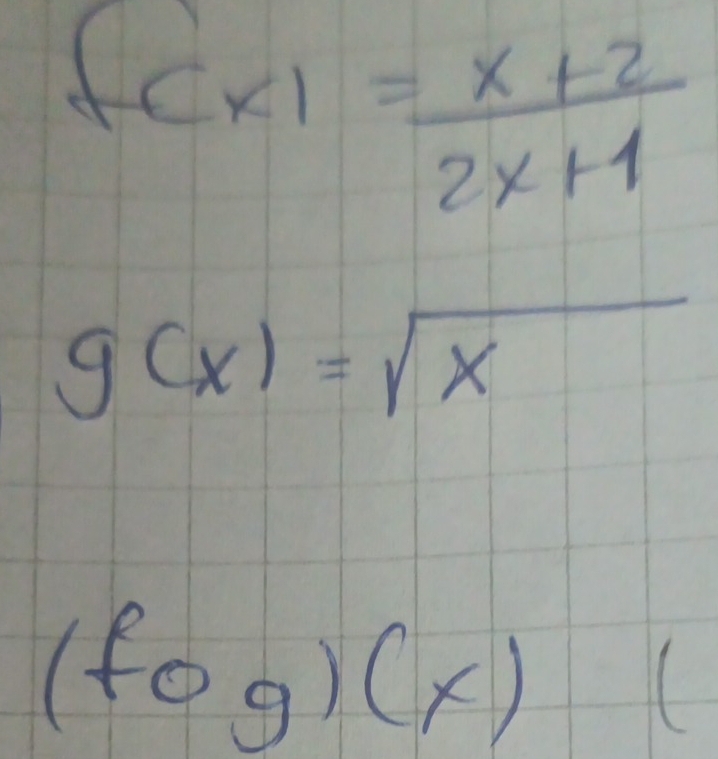 f(x) = x+2 / 2x+1
g(x) = √x
(fog)(x) (